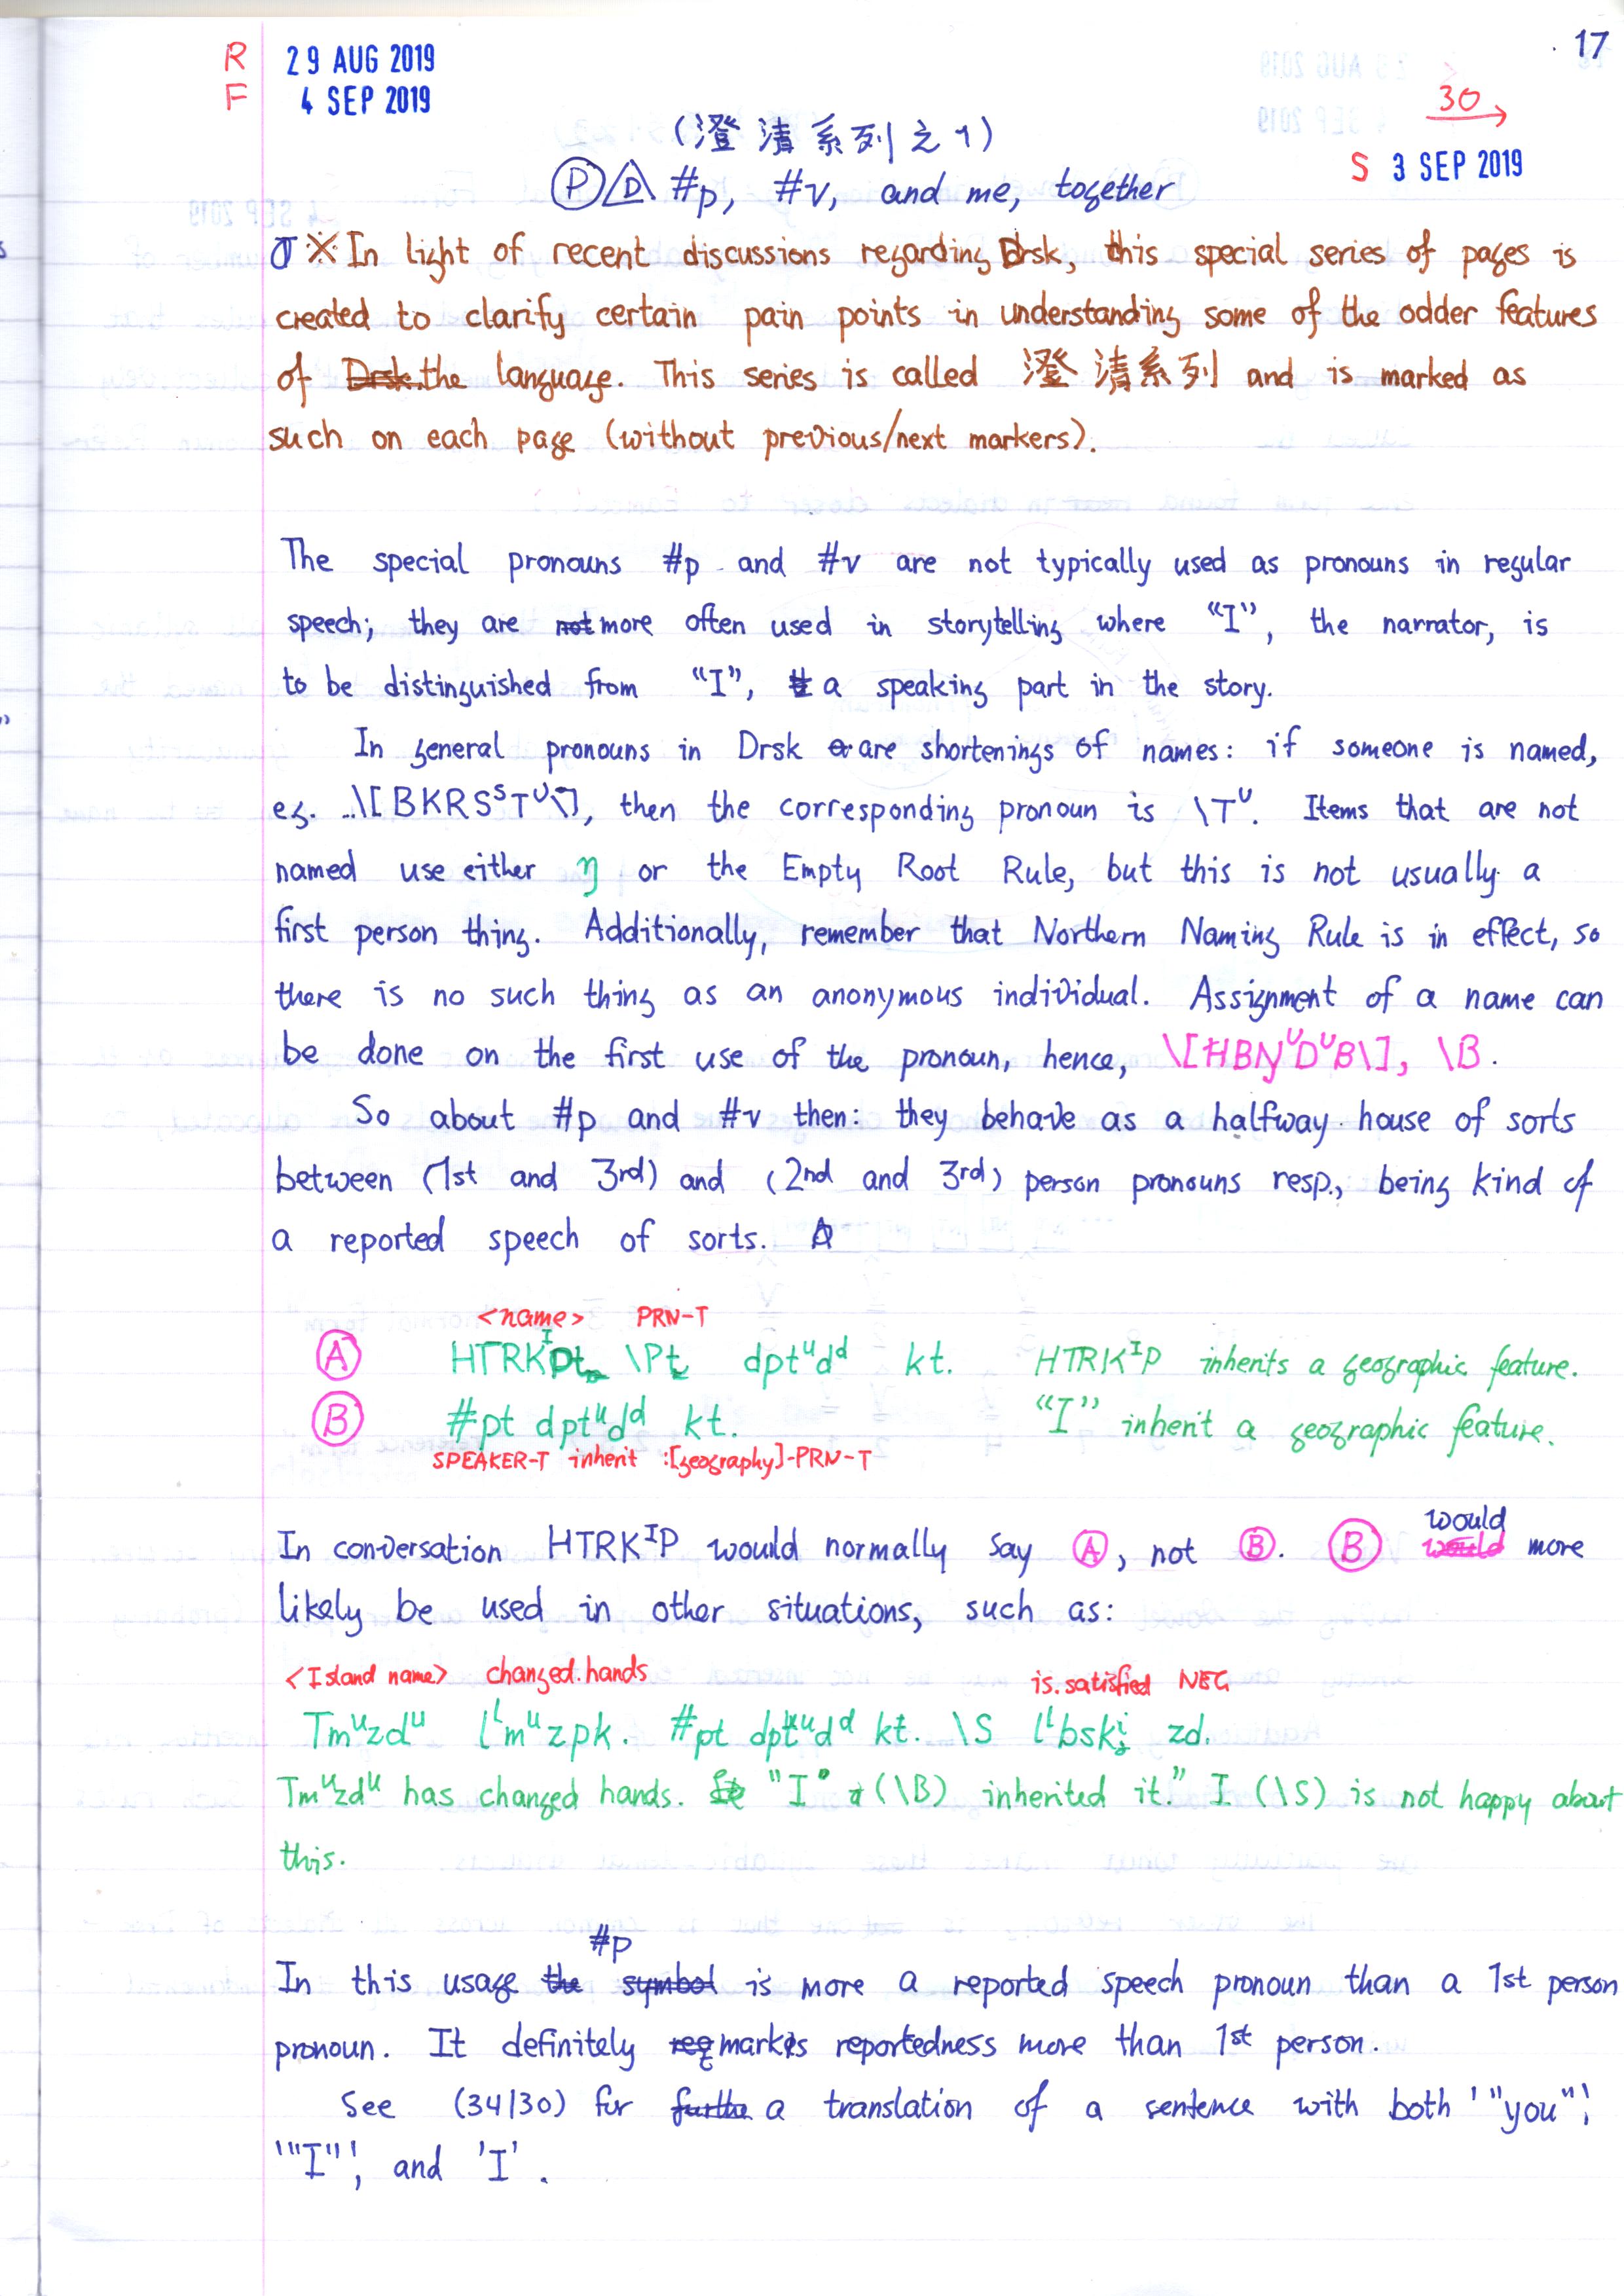 17
R 29 AUG 2019
F 4 SEP 2019
30
S 3 SEP 2019
(澄清系列之1)
Ⓟ #p, #v, and me, together
※In light of recent discussions regarding Drsk, this special series of pages is
created to clarify certain pain points in understanding some of the odder features
of Drsk. the language. This series is called 澄清系列 and is marked as
such on each page (without previous/next markers).
The special pronouns #p and #v are not typically used as pronouns in regular
speech; they are not more often used in storytelling where “I”, the narrator, is
to be distinguished from “I”, a speaking part in the story.
In general pronouns in Drsk are shortenings of names: if someone is named,
eg. \[BKRSˢTᵁ\], then the corresponding pronoun is \Tᵁ. Items that are not
named use either η or the Empty Root Rule, but this is not usually a
first person thing. Additionally, remember that Northern Naming Rule is in effect, so
there is no such thing as an anonymous individual. Assignment of a name can
be done on the first use of the pronoun, hence, \[HBNᵁDᵁB\], \B.
So about #p and #v then: they behave as a halfway house of sorts
between (1st and 3rd) and (2nd and 3rd) person pronouns resp., being kind of
a reported speech of sorts.
<name> PRN-T
Ⓐ HTRKᴵPt \Pt dptᵘdᵈ kt. HTRKᴵP inherits a geographic feature.
Ⓑ #pt dptᵘdᵈ kt. “I” inherit a geographic feature.
SPEAKER-T inherit :[geography]-PRN-T
In conversation HTRKᴵP would normally say Ⓐ, not Ⓑ. Ⓑ would more
likely be used in other situations, such as:
<Island name> changed.hands is.satisfied NEG
Tmᵘzdᵘ lᴸmᵘzpk. #pt dptᵘdᵈ kt. \S lᴸbskⁱ zd.
Tmᵘzdᵘ has changed hands. "I" (\B) inherited it." I (\S) is not happy about
this.
In this usage the symbol #p is more a reported speech pronoun than a 1st person
pronoun. It definitely marks reportedness more than 1st person.
See (34/30) for a translation of a sentence with both '"you"',
'"I"', and 'I'.